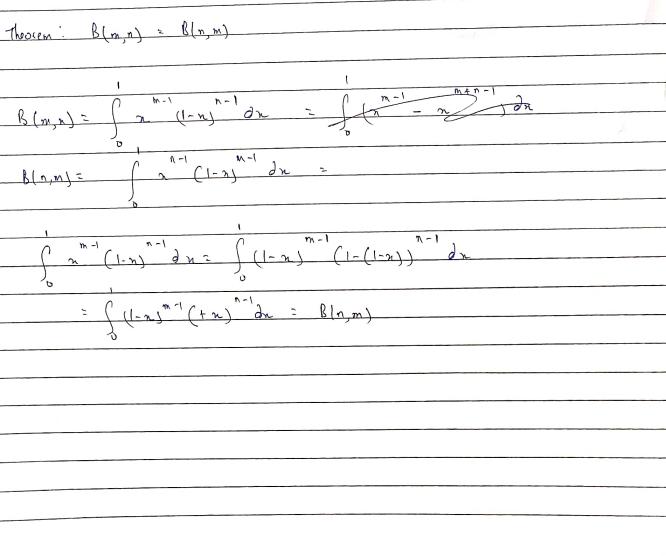 Theorem : B(m,n) = B(n,m)
B(m,n) = ∫₀¹ x^{m-1} (1-x)^{n-1} dx = ∫₀¹ (x^{m-1} - x^{m+n-1}) dx
B(n,m) = ∫₀¹ x^{n-1} (1-x)^{m-1} dx =
∫₀¹ x^{m-1} (1-x)^{n-1} dx = ∫₀¹ (1-x)^{m-1} (1-(1-x))^{n-1} dx
= ∫₀¹ (1-x)^{m-1} (+x)^{n-1} dx = B(n,m)